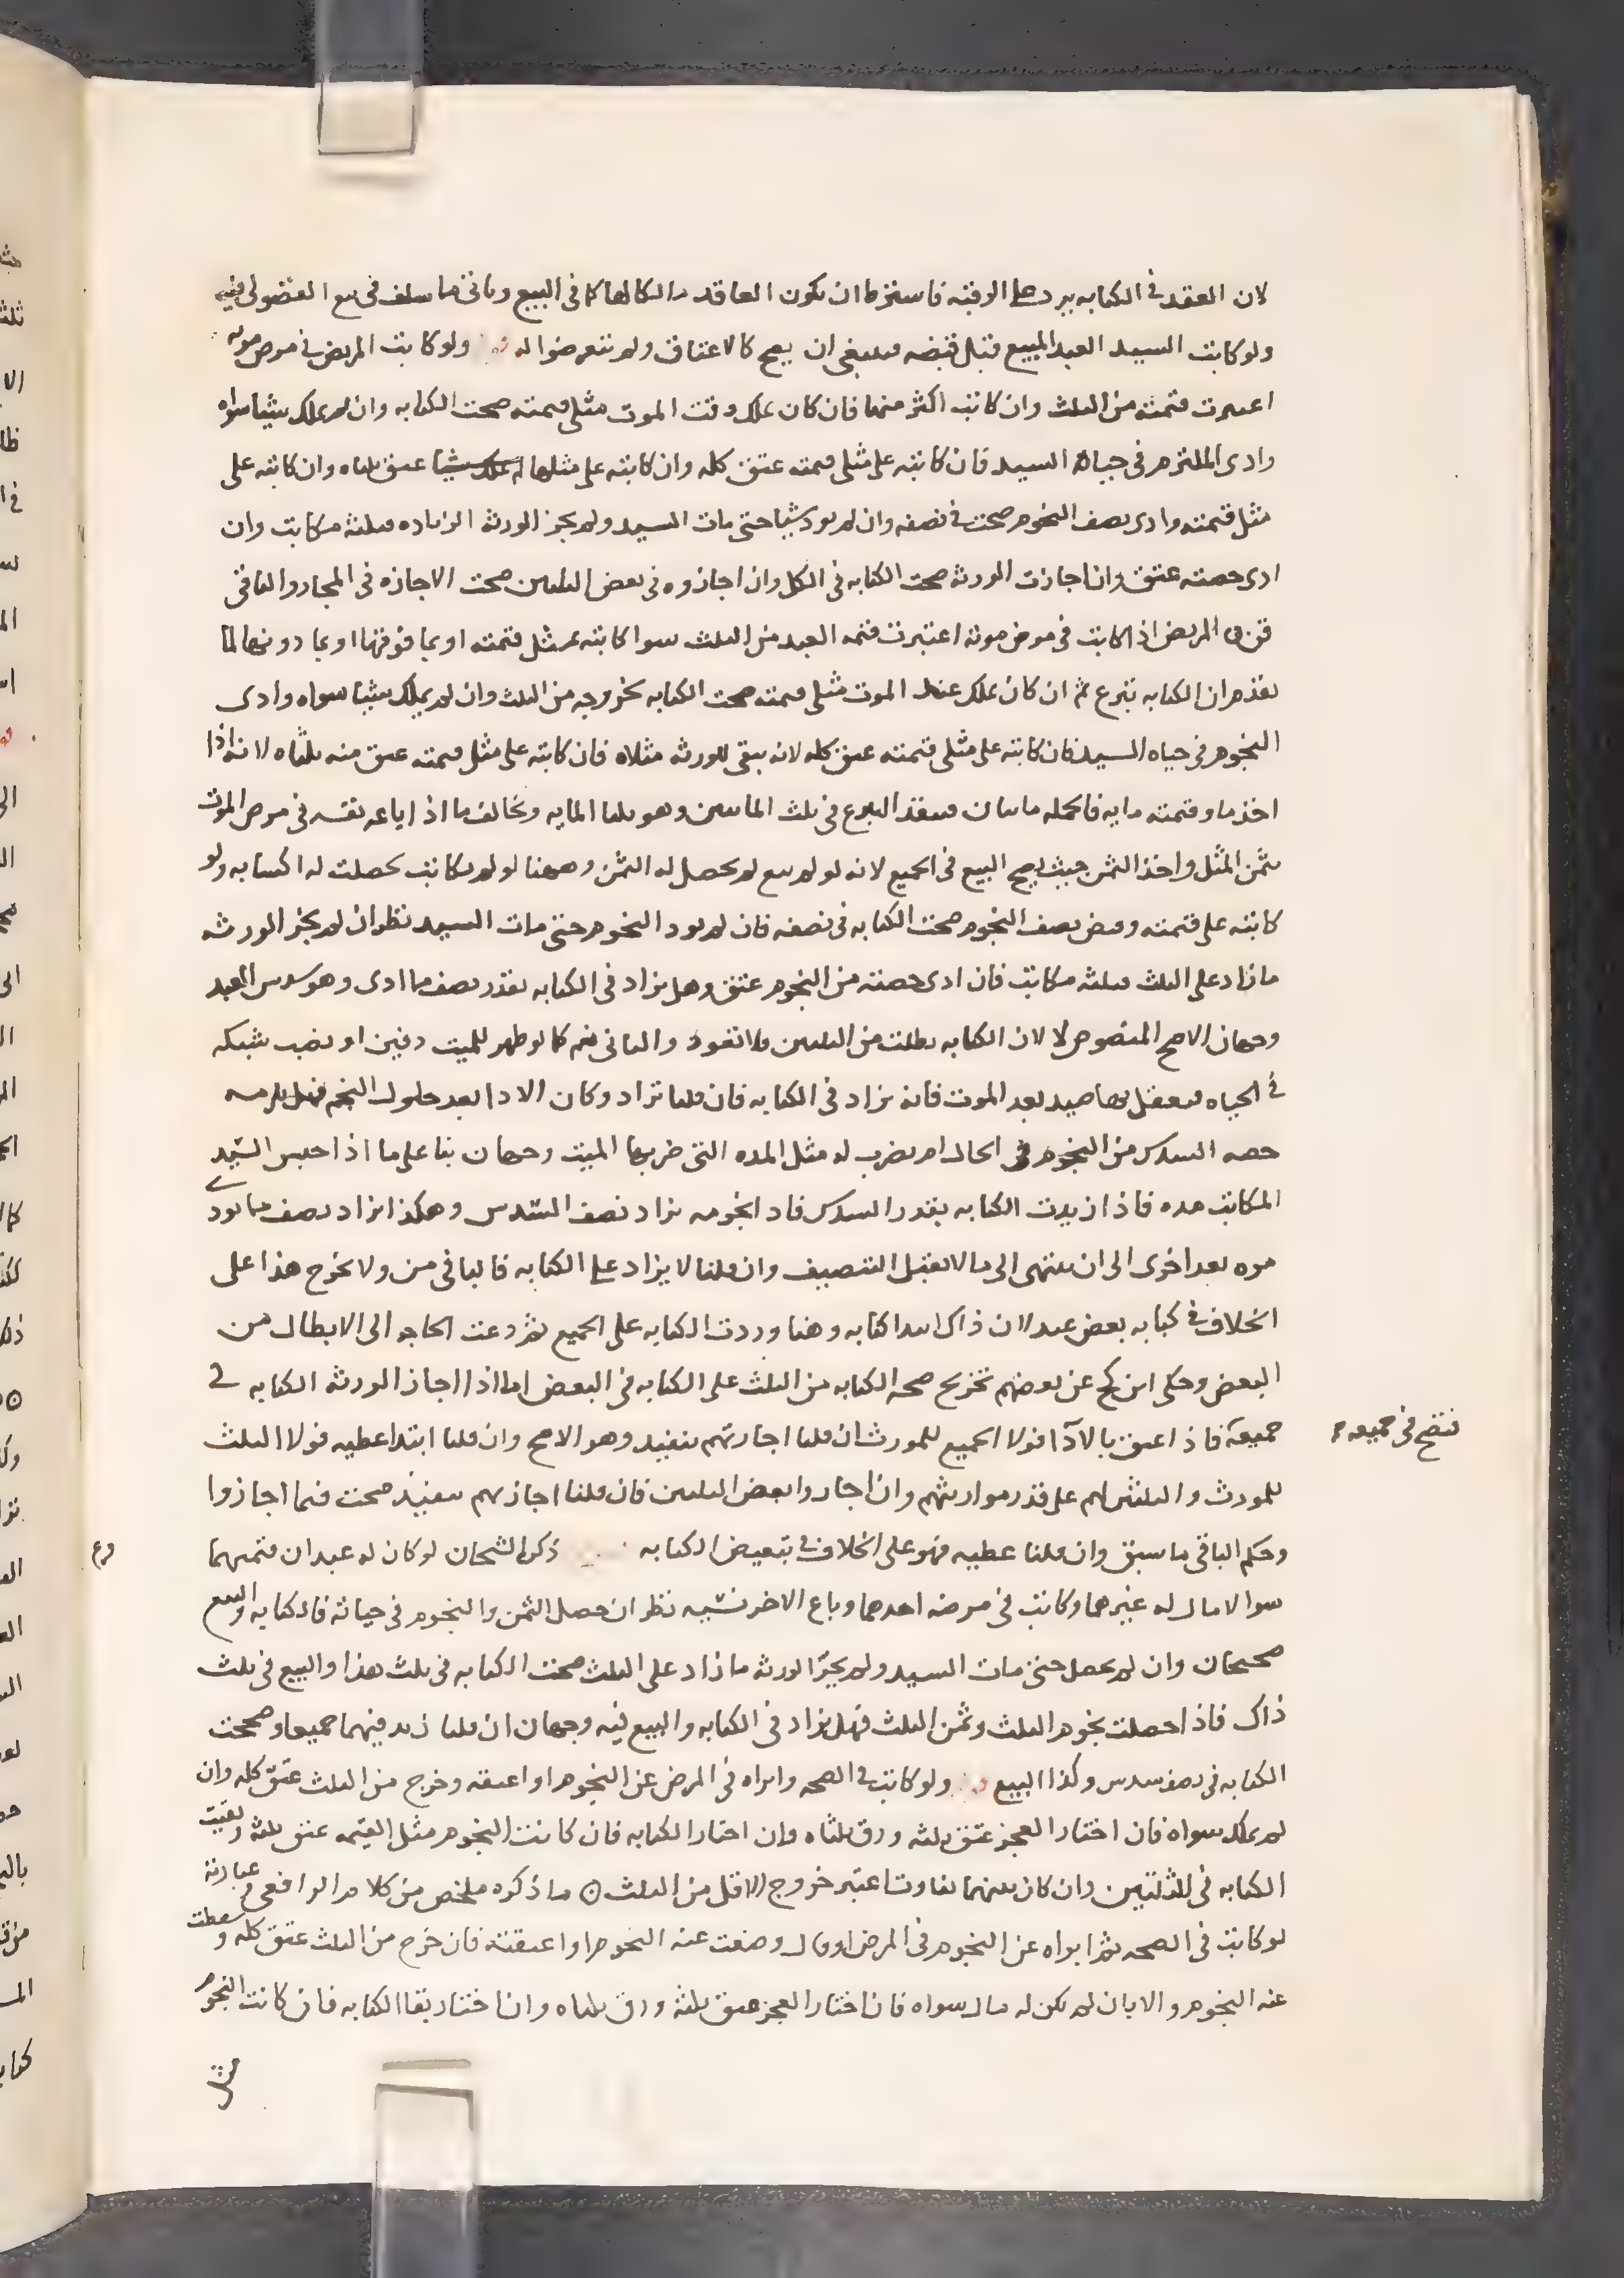 لان العقد في الكتابه يرد على الرقبه فاشترط ان يكون العاقد مالكا لها كما في البيع وياتي ما سلف في بيع الفضولي فيه
ولو كاتب السيد العبد المبيع قبل قبضه فينبغي ان يصح كالاعتاق ولم يتعرضوا له ولو كاتب المريض في مرض موته
اعتبرت قيمته من الثلث وان كاتبه اكثر منها فان كان يملك وقت الموت مثلي قيمته صحت الكتابه وان لم يملك شيا سواه
وادى الملتزم في حياة السيد فان كاتبه على مثلي قيمته عتق كله وان كاتبه على مثلها عتق ثلثاه وان كاتبه على
مثل قيمته وادى نصف النجوم صحت في نصفه وان لم يود شيا حتى مات السيد ولم يجز الورثه الزياده فثلثه مكاتب وان
ادى حصته عتق وان اجازت الورثه صحت الكتابه في الكل وان اجازوه في بعض الثلثين صحت الاجازه في المجاز والباقي
قن المريض اذا كاتب في مرض موته اعتبرت قيمه العبد من الثلث سوا كاتبه بمثل قيمته او بما فوقها او بما دونها لما
تقدم ان الكتابه تبرع ثم ان كان يملك عند الموت مثلي قيمته صحت الكتابه لخروجه من الثلث وان لم يملك شيا سواه وادى
النجوم في حياه السيد فان كاتبه على مثلي قيمته عتق كله لانه يبقى للورثه مثلاه فان كاتبه على مثل قيمته عتق منه ثلثاه لانه اذا
اخذ مايه وقيمته مايه فالجمله مايتان فينفذ التبرع في ثلث المايتين وهو ثلثا المايه ويخالف ما اذا باعه نفسه في مرض الموت
بثمن المثل واخذ الثمن حيث يصح البيع في الجميع لانه لو لم يبع لم يحصل له الثمن وههنا لو لم يكاتب لحصلت له اكسابه ولو
كاتبه على قيمته وقبض نصف النجوم صحت الكتابه في نصفه فان لم يود النجوم حتى مات السيد نظر ان لم يجز الورثه
ما زاد على الثلث فثلثه مكاتب فان ادى حصته من النجوم عتق وهل يزاد في الكتابه بقدر نصف ما ادى وهو سدس العبد
وجهان الاصح المنصوص لا لان الكتابه بطلت من الثلثين فلا تعود والثاني نعم كما لو ظهر للميت دفين او نصب شبكه
في الحياه فتعقل بها صيد بعد الموت فانه يزاد في الكتابه فان قلنا يزاد وكان الادا بعد حلول النجم فهل يلزمه
حصه السدس من النجوم في الحال ام يضرب له مثل المده التي ضربها الميت وجهان بنا على ما اذا حبس السيد
المكاتب مده فاذا زيدت الكتابه بقدر السدس فادى نجومه يزاد نصف السدس وهكذا يزاد نصف ما يودى
مره بعد اخرى الى ان ينتهي الى ما لا يقبل التنصيف وان قلنا لا يزاد على الكتابه فالباقي قن ولا يخرج هذا على
الخلاف في كتابه بعض عبد لان ذاك ابتدا كتابه وهنا وردت الكتابه على الجميع ثم دعت الحاجه الى الابطال من
البعض وحكى ابن كج عن بعضهم تخريج صحه الكتابه من الثلث على الكتابه في البعض اما اذا اجاز الورثه الكتابه في
جميعه فاذا عتق بالادا فولا الجميع للمورث ان قلنا اجازتهم تنفيذ وهو الاصح وان قلنا ابتدا عطيه فولا الثلث
فتصح في جميعه
للمورث والثلثين لهم على قدر مواريثهم وان اجازوا بعض الثلثين فان قلنا اجازتهم تنفيذ صحت فيما اجازوا
وحكم الباقي ما سبق وان قلنا عطيه فهو على الخلاف في تبعيض الكتابه ذكر الشيخان لو كان له عبدان قيمتهما
فرع
سوا لا مال له غيرهما وكاتب في مرضه احدهما وباع الاخر نسيه نظر ان حصل الثمن والنجوم في حياته فالكتابه والبيع
صحيحان وان لم يحصل حتى مات السيد ولم يجز الورثه ما زاد على الثلث صحت الكتابه في ثلث هذا والبيع في ثلث
ذاك فاذا حصلت نجوم الثلث وثمن الثلث فهل يزاد في الكتابه والبيع فيه وجهان ان قلنا زيد فيهما جميعا وصححت
الكتابه في نصف سدس وكذا البيع ولو كاتب في الصحه وابراه في المرض عن النجوم او اعتقه وخرج من الثلث عتق كله وان
لم يملك سواه فان اختار العجز عتق ثلثه ورق ثلثاه وان اختار الكتابه فان كانت النجوم مثل القيمه عتق ثلثه وبقيت
الكتابه في الثلثين وان كان بينهما تفاوت اعتبر خروج الاقل من الثلث ۞ ما ذكره ملخص من كلام الرافعي وعبارته
لو كاتب في الصحه ثم ابراه عن النجوم في المرض او قال وضعت عنه النجوم او اعتقته فان خرج من الثلث عتق كله وسقطت
عنه النجوم والا بان لم يكن له مال سواه فان اختار العجز عتق ثلثه ورق ثلثاه وان اختار بقا الكتابه فان كانت النجوم
مثل